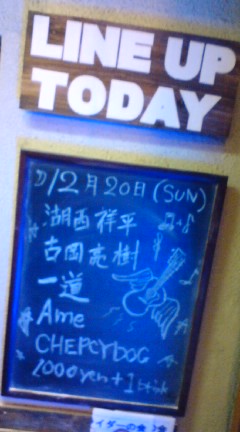 LINE UP
TODAY
12月20日(SUN)
湖西祥平
古岡亮樹
一道
Ame
CHEPCYDOG
1000yen+1
イダーの食